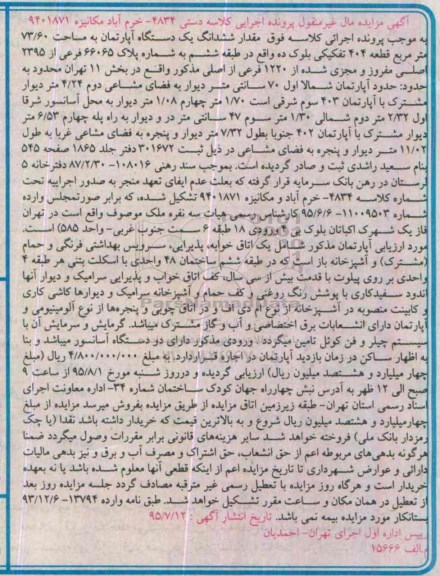 آگهی مزایده مال غیرمنقول پرونده اجرایی کلاسه دستی ۴۸۳۴- خرم آباد مکانیزه ۹۴۰۱۸۷۱
به موجب پرونده اجرائی کلاسه فوق مقدار ششدانگ یک دستگاه آپارتمان به مساحت ۷۳/۶۰
متر مربع قطعه ۴۰۴ تفکیکی بلوک ده واقع در طبقه ششم به شماره پلاک ۶۶۰۶۵ فرعی از ۲۳۹۵
اصلی مفروز و مجزی شده از ۱۲۲۰ فرعی از اصلی مذکور واقع در بخش ۱۱ تهران محدود به
حدود: حدود آپارتمان شمالا اول ۷۰ سانتی متر دیوار به فضای مشاعی دوم ۴/۲۴ متر دیوار
مشترک با آپارتمان ۴۰۳ سوم شرقی است ۱/۷۰ متر چهارم ۱/۰۸ متر دیوار به محل آسانسور شرقا
اول ۲/۳۲ متر دوم شمالی ۱/۳۰ متر سوم ۴۷ سانتی متر در و دیوار به راه پله چهارم ۶/۵۳ متر
دیوار مشترک با آپارتمان ۴۰۲ جنوبا بطول ۷/۳۲ متر دیوار و پنجره به فضای مشاعی غربا به طول
۱۱/۰۲ متر دیوار و پنجره به فضای مشاعی در ذیل ثبت ۳۰۱۶۷۲ دفتر جلد ۱۸۶۵ صفحه ۵۴۵
بنام سعید راشدی ثبت و صادر گردیده است. بموجب سند رهنی ۱۰۸۰۱۶- ۸۷/۲/۳۰ دفترخانه ۵
لرستان در رهن بانک سرمایه قرار گرفته که بعلت عدم ایفای تعهد منجر به صدور اجراییه تحت
شماره کلاسه ۴۸۳۴- خرم آباد و مکانیزه ۹۴۰۱۸۷۱ تشکیل شده، که برابر صورتمجلس وارده
شماره ۱۱۰۰۹۵۰۳- ۹۵/۶/۶ کارشناس رسمی هیات سه نفره ملک موصوف واقع است در تهران
فاز یک شهرک اکباتان بلوک ۱۰ ورودی ۱۸ طبقه ۶ سمت جنوب غربی- واحد ۵۸۵) است.
مورد ارزیابی آپارتمان مذکور شامل یک اتاق خوابه، پذیرایی، سرویس بهداشتی فرنگی و حمام
(مشترک) و آشپزخانه باز است که در طبقه ششم ساختمان ۴۸ واحدی با اسکلت بتنی هر طبقه ۴
واحدی بر روی پیلوت با قدمت بیش از سی سال، کف اتاق خواب و پذیرایی سرامیک و دیوار آنها
اندود سفیدکاری با پوشش رنگ روغنی و کف حمام و آشپزخانه سرامیک و دیوارها کاشی کاری
و کابینت منصوبه در آشپزخانه از نوع ام دی اف و در اتاق چوبی و پنجره‌ها از نوع آلومینیومی و
آپارتمان دارای انشعابات برق اختصاصی و آب و گاز مشترک میباشد. گرمایش و سرمایش آن با
سیستم چیلر و فن کوئل تامین میگردد. ورودی مذکور دارای دو دستگاه آسانسور میباشد و بنا
به اظهار ساکن در زمان بازدید آپارتمان در اجاره قرار دارد. به مبلغ ۴/۸۰۰/۰۰۰/۰۰۰ ریال (مبلغ
چهار میلیارد و هشتصد میلیون ریال) ارزیابی گردیده و درروز شنبه مورخ ۹۵/۸/۱ از ساعت ۹
صبح الی ۱۲ ظهر به آدرس نبش چهارراه جهان کودک ساختمان شماره ۳۴- اداره معاونت اجرای
اسناد رسمی استان تهران- طبقه زیرزمین اتاق مزایده از طریق مزایده بفروش میرسد مزایده از مبلغ
چهارمیلیارد و هشتصد میلیون ریال شروع و به بالاترین قیمت که خریدار داشته باشد نقدا (یا چک
رمزدار بانک ملی) فروخته خواهد شد سایر هزینه‌های قانونی برابر مقررات وصول میگردد ضمنا
هرگونه بدهی‌های مربوطه اعم از حق انشعاب، حق اشتراک و مصرف آب و برق و نیز بدهی مالیات
دارائی و عوارض شهرداری تا تاریخ مزایده اعم از اینکه قطعی آنها معلوم شده باشد یا نه بعهده
خریدار است و هرگاه روز مزایده با تعطیل رسمی غیر مترقبه مصادف گردد جلسه مزایده روز بعد
از تعطیل در همان مکان و ساعت مقرر تشکیل خواهد شد. طبق نامه وارده ۱۳۷۹۴- ۹۳/۱۲/۶
بستانکار مورد مزایده بیمه نمی باشد. تاریخ انتشار آگهی : ۹۵/۷/۱۲
رییس اداره اول اجرای تهران- احمدیان
م الف ۱۵۶۶۶